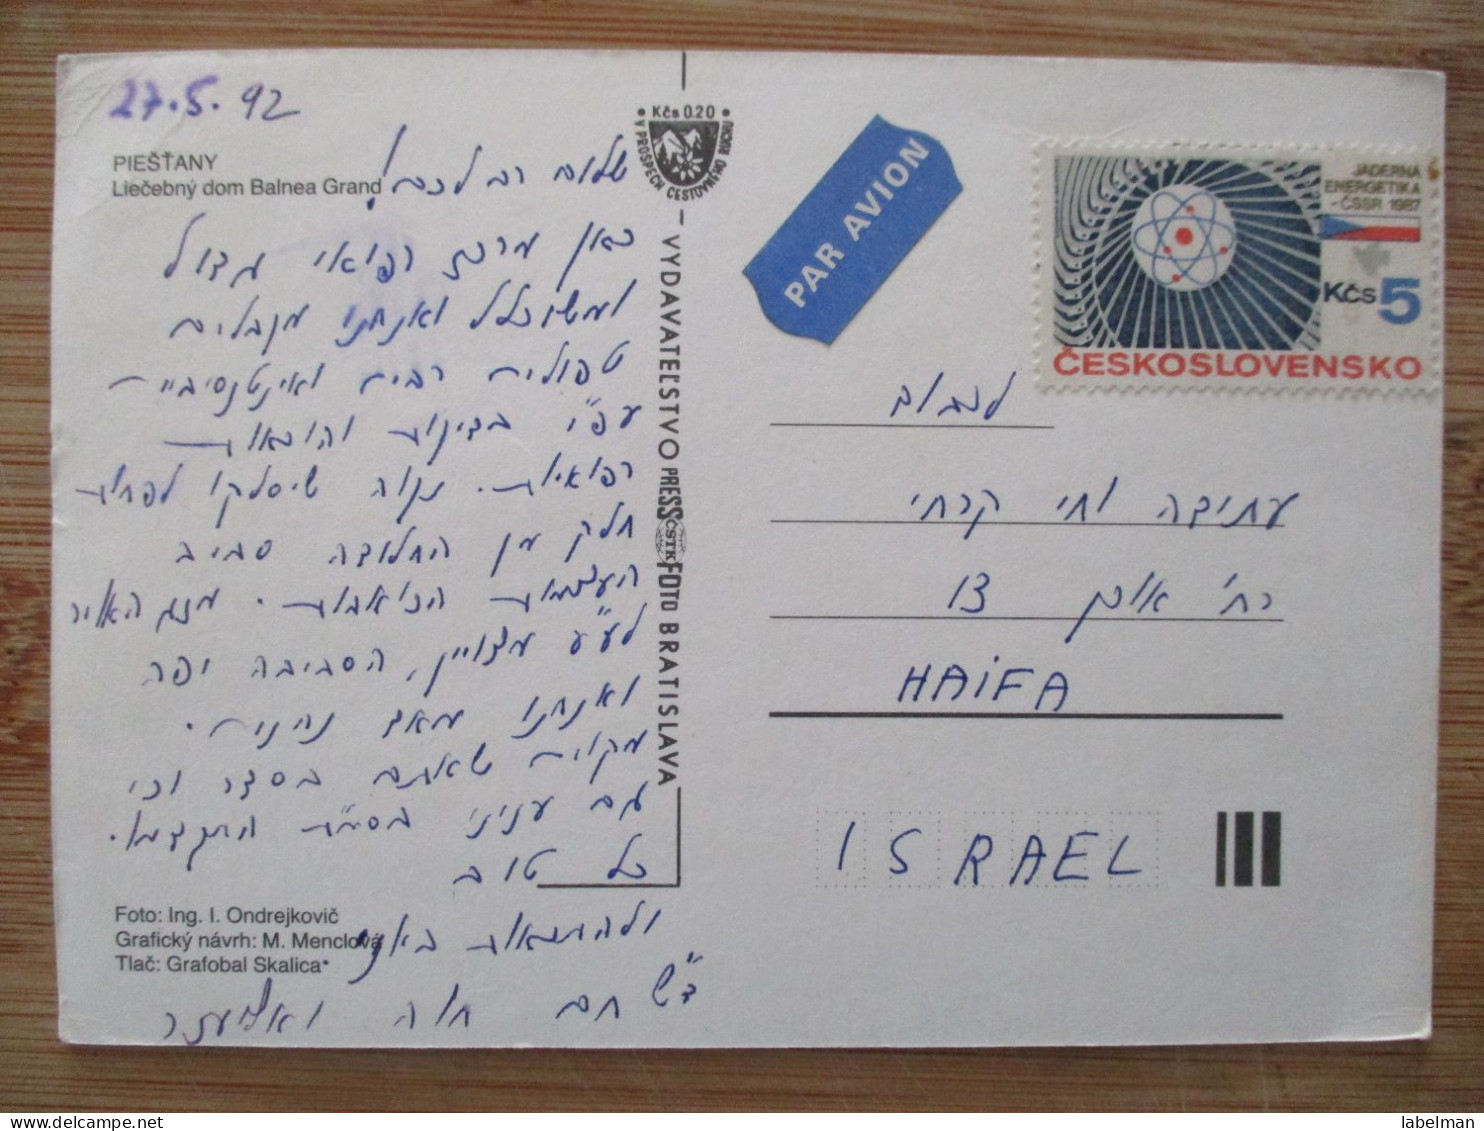 27.5.92
PIEŠŤANY
Liečebný dom Balnea Grand
שלום רב לכם!
כאן מרכז רפואי גדול
ומשוכלל ואנחנו מקבלים
טפולים רבים ואינטנסיביים
עפ"י בדיקות והוראות
רפואיות. נקוה שיסלקו לפחות
חלק מן החלודה סביב
העצמות הכואבות. מזג האויר
לע"ע מצויין, הסביבה יפה
ואנחנו מאד נהינים.
מקוים שאתם בסדר וכי
גם עניני בסמ"ת התקדמו.
כל טוב
ולהתראות בארץ
ד"ש חם חוה ואליעזר
Foto: Ing. I. Ondrejkovič
Grafický návrh: M. Menclová
Tlač: Grafobal Skalica
• Kčs 0.20 •
V PROSPECH CESTOVNÉHO RUCHU
VYDAVATEĽSTVO PRESSFOTO BRATISLAVA
ČSTK
PAR AVION
JADERNÁ
ENERGETIKA
- ČSSR 1987
Kčs 5
ČESKOSLOVENSKO
לכבוד
עתידה וחי קרחי
רח' אורן 13
HAiFA
ISRAEL
labelman
www.delcampe.net